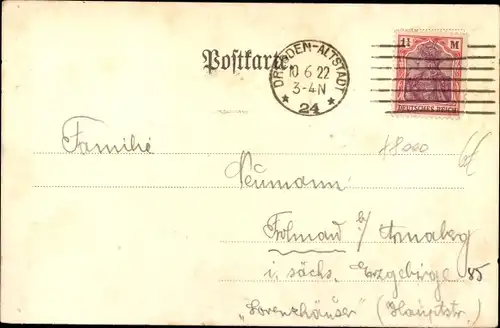 Postkarte
DRESDEN-ALTSTADT
10 6 22
3-4 N
* 24 *
1¼ M
DEUTSCHES REICH
Familie
Neumann
b/ Annaberg
i. sächs. Erzgebirge 85
„Lorenzhäuser" (Hauptstr.)